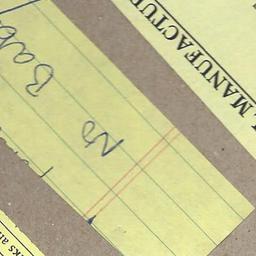 No Bab
L. MANUFACTUR
ks an